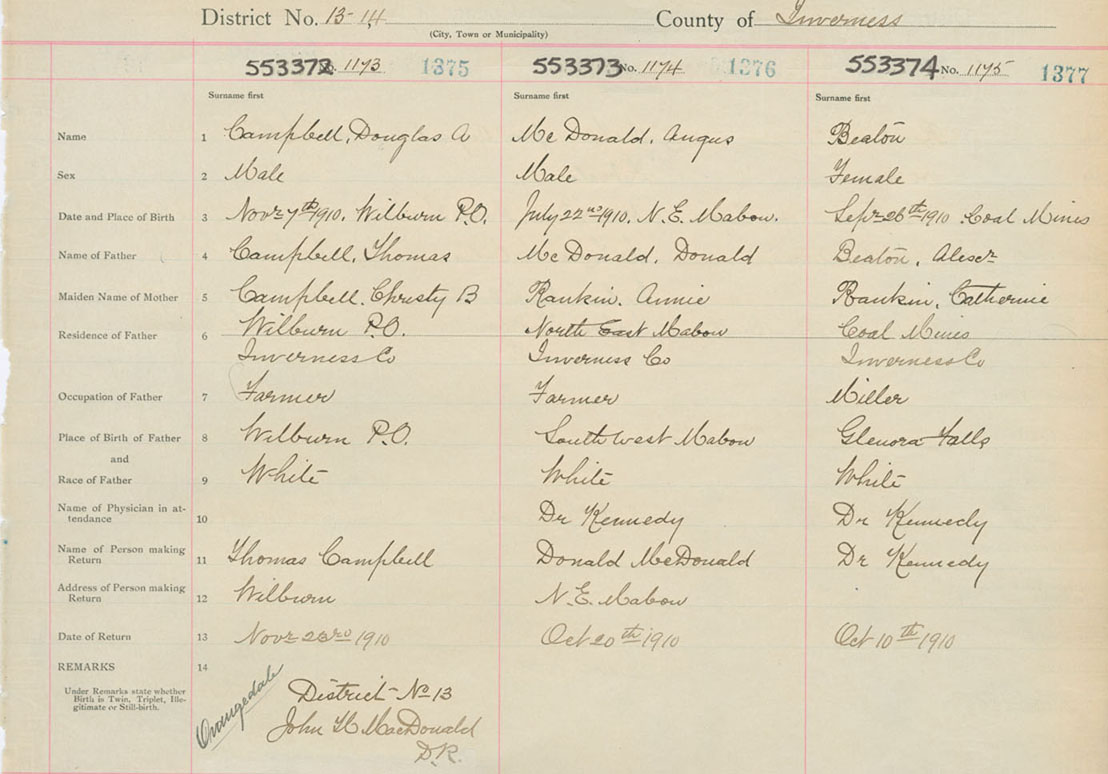 District No. 13-14 County of Inverness
(City, Town or Municipality)
553372 No. 1173 1375 553373 No. 1174 1376 553374 No. 1175 1377
Surname first Surname first Surname first
Name 1 Campbell, Douglas A McDonald, Angus Beaton
Sex 2 Male Male Female
Date and Place of Birth 3 Novr 7th 1910. Wilburn P.O. July 22nd 1910. N.E. Mabou. Sepr 26th 1910. Coal Mines
Name of Father 4 Campbell, Thomas McDonald, Donald Beaton, Alexr
Maiden Name of Mother 5 Campbell, Christy B Rankin, Annie Rankin, Catherine
Residence of Father 6 Wilburn P.O. North East Mabou Coal Mines
Inverness Co Inverness Co Inverness Co
Occupation of Father 7 Farmer Farmer Miller
Place of Birth of Father 8 Wilburn P.O. South West Mabou Glenora Falls
and
Race of Father 9 White White White
Name of Physician in at-
tendance 10 Dr Kennedy Dr Kennedy
Name of Person making
Return 11 Thomas Campbell Donald McDonald Dr Kennedy
Address of Person making
Return 12 Wilburn N.E. Mabou
Date of Return 13 Novr 23rd 1910 Oct 20th 1910 Oct 10th 1910
REMARKS 14
Under Remarks state whether
Birth is Twin, Triplet, Ille-
gitimate or Still-birth.
Orangedale
District No 13
John H MacDonald
D.R.